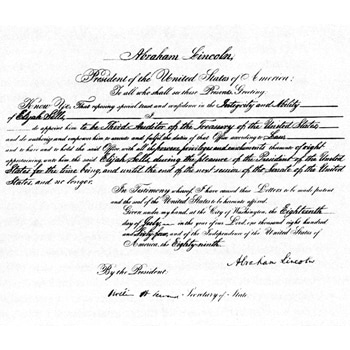 Abraham Lincoln,
President of the United States of America:
To all who shall see these Presents, Greeting:
Know Ye, That reposing special trust and confidence in the Integrity and Ability
of Elijah Sells,
I do appoint him to be Third Auditor of the Treasury of the United States,
and do authorize and empower him to execute and fulfil the duties of that Office according to Law;
and to have and to hold the said Office with all the powers, privileges and emoluments thereunto of right
appertaining, unto him the said Elijah Sells, during the pleasure of the President of the United
States for the time being, and until the end of the next session of the Senate of the United
States, and no longer.
In Testimony whereof, I have caused these Letters to be made patent
and the seal of the United States to be hereunto affixed.
Given under my hand, at the City of Washington, the Eighteenth
day of July, in the year of our Lord one thousand eight hundred
and Sixty four, and of the Independence of the United States of
America, the Eighty-ninth.
Abraham Lincoln
By the President:
Secretary of State